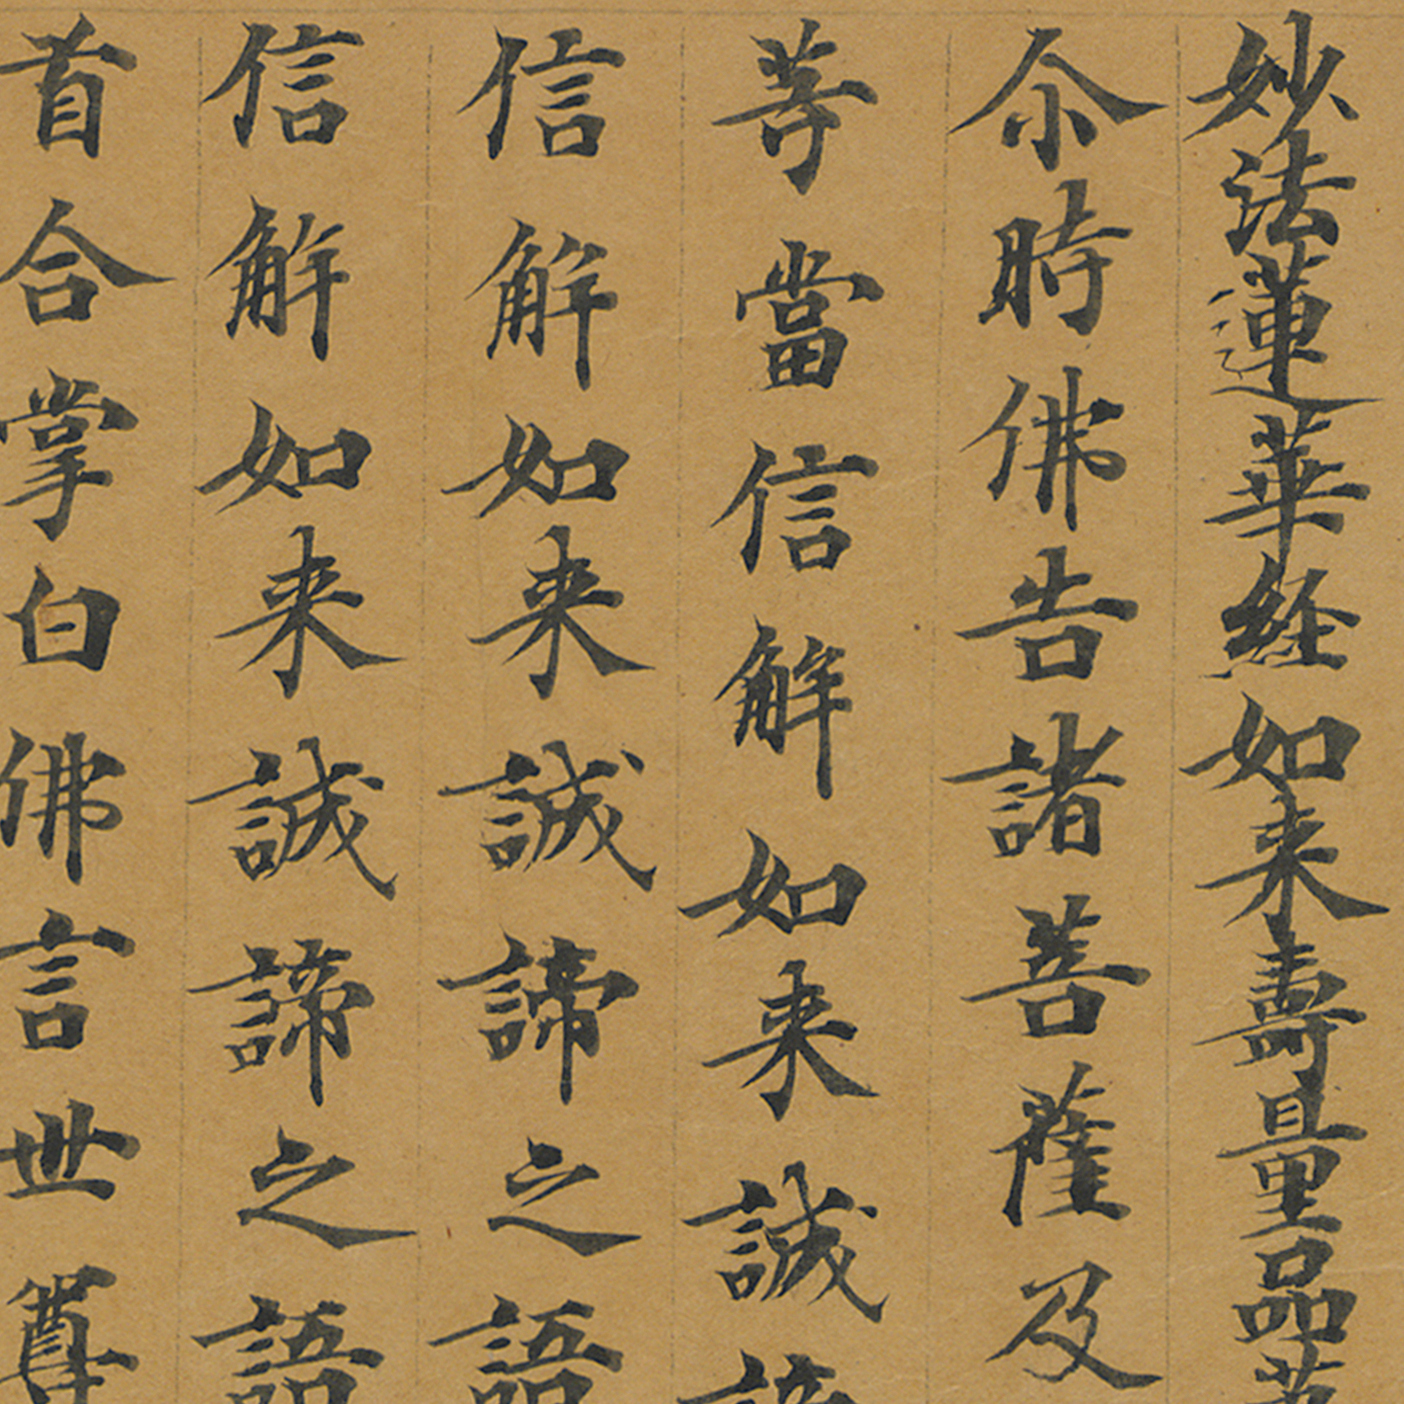 妙法蓮華経如来壽量品苐
尒時佛告諸菩薩及
等當信解如来誠諦
信解如来誠諦之語
信解如来誠諦之語
首合掌白佛言世尊